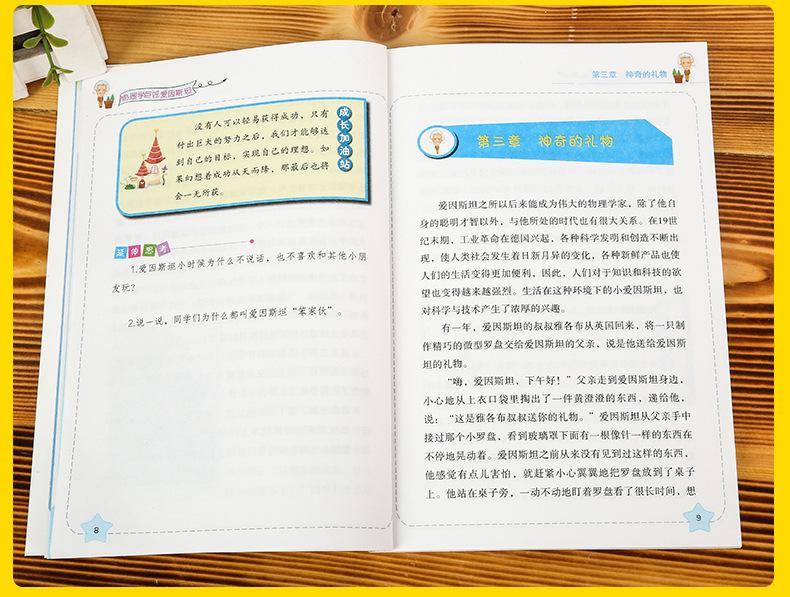 物理学巨匠爱因斯坦
没有人可以轻易获得成功，只有
付出巨大的努力之后，我们才能够达
到自己的目标，实现自己的理想。如
果幻想着成功从天而降，那最后也将
会一无所获。
成长加油站
延伸思考
1.爱因斯坦小时候为什么不说话，也不喜欢和其他小朋
友玩？
2.说一说，同学们为什么都叫爱因斯坦“笨家伙”。
8
第三章 神奇的礼物
第三章 神奇的礼物
爱因斯坦之所以后来能成为伟大的物理学家，除了他自
身的聪明才智以外，与他所处的时代也有很大关系。在19世
纪末期，工业革命在德国兴起，各种科学发明和创造不断出
现，使人类社会发生着日新月异的变化，各种新鲜产品也使
人们的生活变得更加便利，因此，人们对于知识和科技的欲
望也变得越来越强烈。生活在这种环境下的小爱因斯坦，也
对科学与技术产生了浓厚的兴趣。
有一年，爱因斯坦的叔叔雅各布从英国回来，将一只制
作精巧的微型罗盘交给爱因斯坦的父亲，说是他送给爱因斯
坦的礼物。
“嗨，爱因斯坦，下午好！”父亲走到爱因斯坦身边，
小心地从上衣口袋里掏出了一件黄澄澄的东西，递给他，
说：“这是雅各布叔叔送你的礼物。”爱因斯坦从父亲手中
接过那个小罗盘，看到玻璃罩下面有一根像针一样的东西在
不停地晃动着。爱因斯坦之前从来没有见到过这样的东西，
他感觉有点儿害怕，就赶紧小心翼翼地把罗盘放到了桌子
上。他站在桌子旁，一动不动地盯着罗盘看了很长时间，想
9